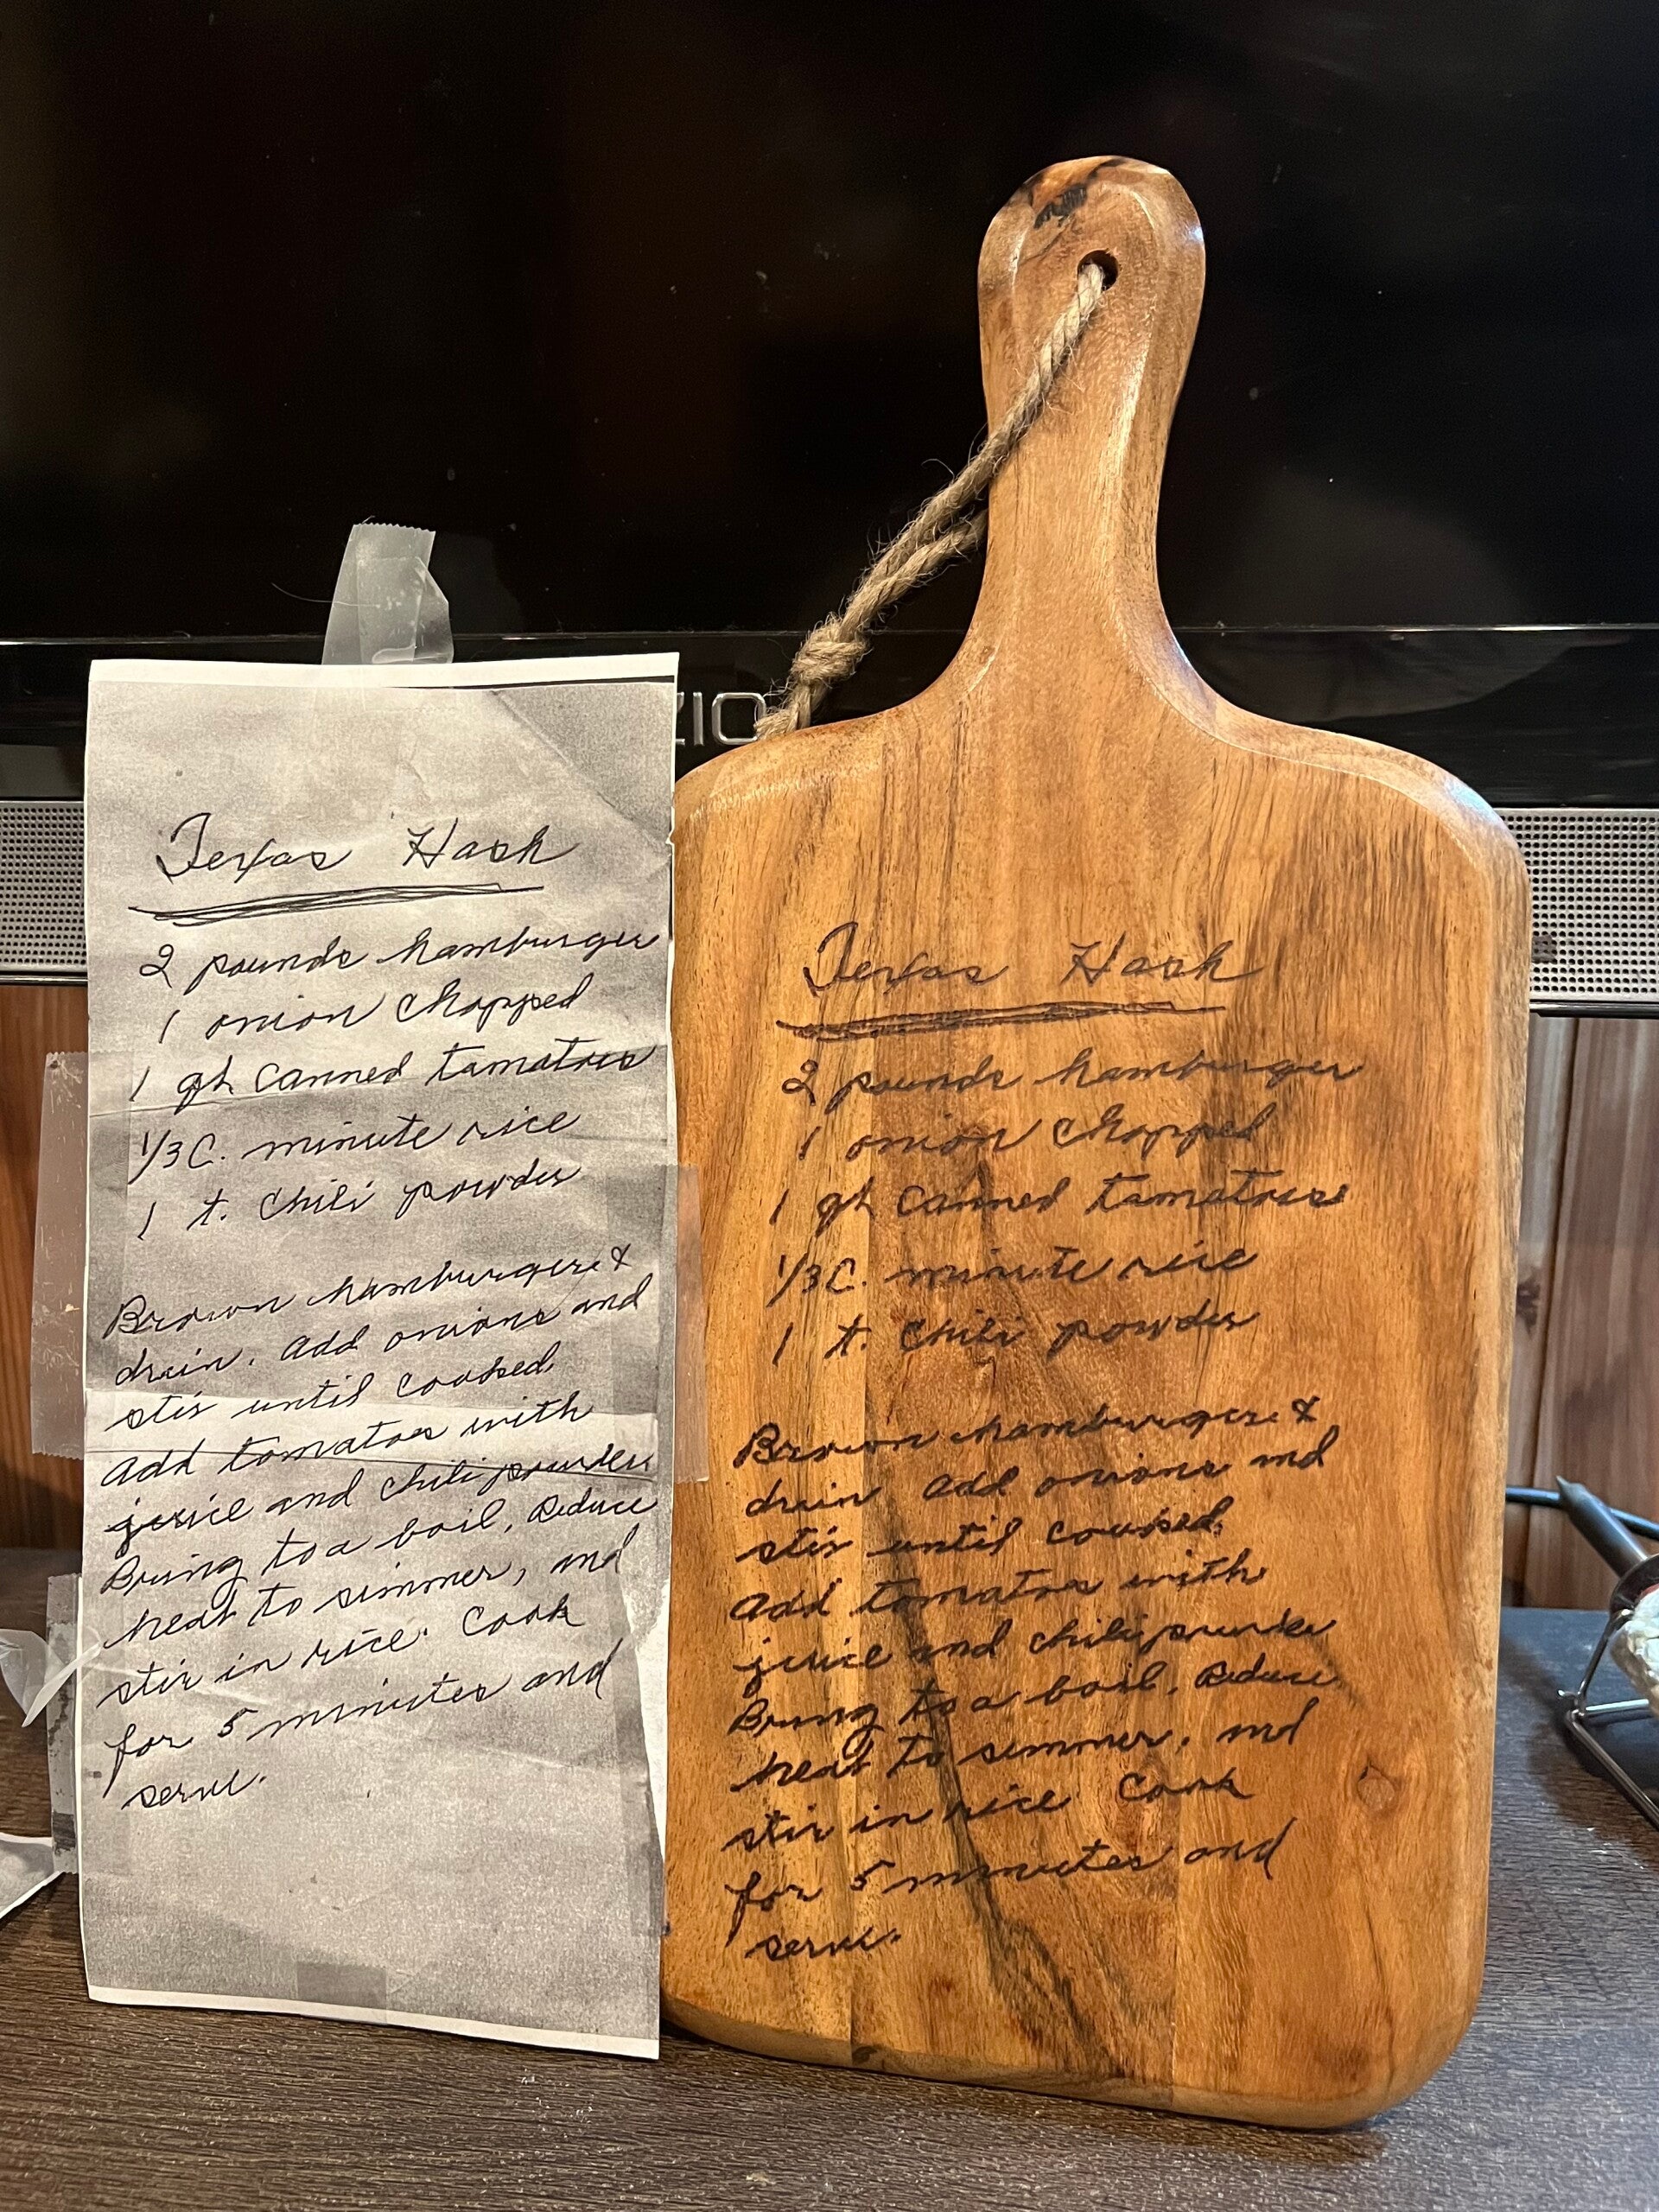 Texas Hash
2 pounds hamburger
1 onion chopped
1 qt canned tamatoes
1/3 C. minute rice
1 t. chili powder
Brown hamburger &
drain. Add onions and
stir until cooked.
Add tomatoes with
juice and chili powder.
Bring to a boil. Reduce
heat to simmer, and
stir in rice. Cook
for 5 minutes and
serve.
ZIO
Texas Hash
2 pounds hamburger
1 onion chopped
1 qt canned tamatoes
1/3 C. minute rice
1 t. chili powder
Brown hamburger &
drain Add onions and
stir until cooked.
Add tomatoes with
juice and chili powder
Bring to a boil. Reduce
heat to simmer, and
stir in rice Cook
for 5 minutes and
serve.